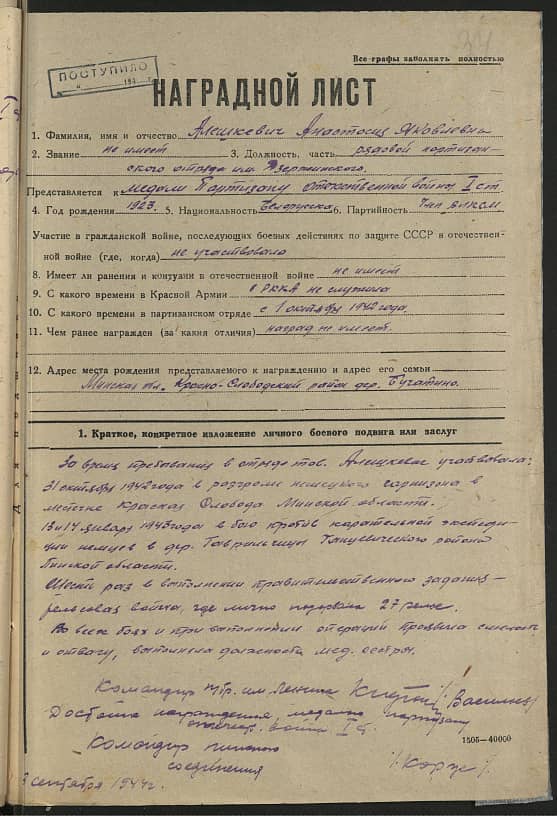 34
Все графы заполнять полностью
ПОСТУПИЛО
194 г.
НАГРАДНОЙ ЛИСТ
1. Фамилия, имя и отчество Алешкевич Анастасия Яковлевна
2. Звание не имеет 3. Должность, часть рядовой партизан-
ского отряда им. Дзержинского.
Представляется к медали Партизану отечественной войны I ст.
4. Год рождения 1923. 5. Национальность Белоруска 6. Партийность Член ВЛКСМ
Участие в гражданской войне, последующих боевых действиях по защите СССР и отечествен-
ной войне (где, когда) не участвовала
8. Имеет ли ранения и контузии в отечественной войне не имеет
9. С какого времени в Красной Армии в РККА не служила
10. С какого времени в партизанском отряде с 1 октября 1942 года
11. Чем ранее награжден (за какия отличия) наград не имеет.
12. Адрес места рождения представляемого к награждению и адрес его семьи
Минская обл. Красно-Слободский район дер. Бучатино.
1. Краткое, конкретное изложение личного боевого подвига или заслуг
За время пребывания в отряде тов. Алешкевич участвовала:
31 октября 1942 года в разгроме немецкого гарнизона в
местечке Красная Слобода Минской области.
13 и 14 января 1943 года в бою против карательной экспеди-
ции немцев в дер. Гаврильчицы Ганцевического района
Пинской области.
Шесть раз в выполнении правительственного задания –
рельсовая война, где лично подорвала 27 рельс.
Во всех боях и при выполнении операций проявила смелость
и отвагу, выполняла должность мед. сестры.
Командир п/бр. им Ленина /Васильев/
Достойна награждения медалью партизану
отечеств. война I ст.
Командир пинского
соединения /Корж/.
1505—40000
сентября 1944 г.